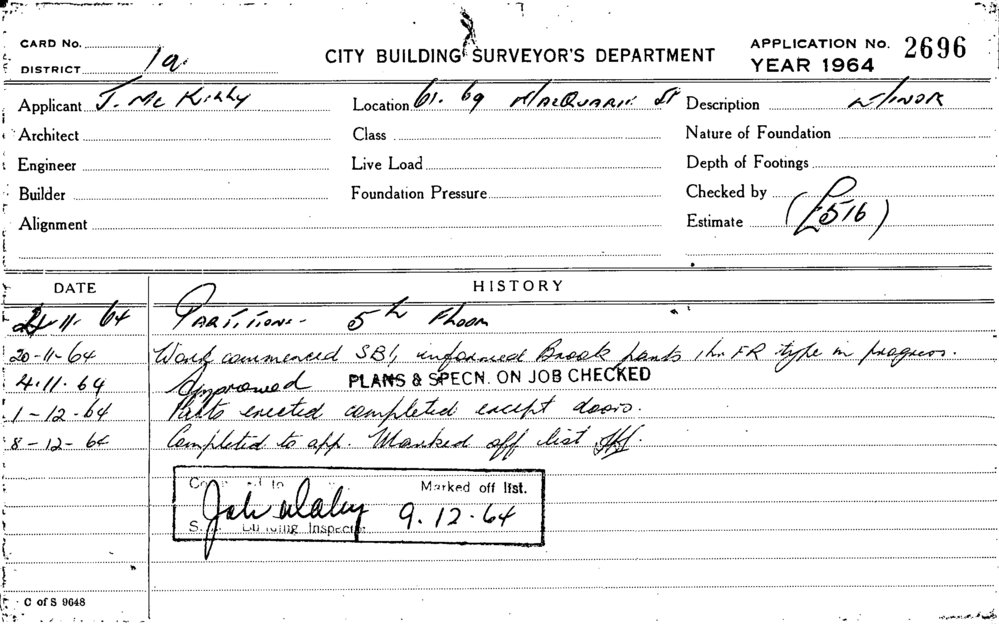 CARD No.
DISTRICT 1a.
CITY BUILDING SURVEYOR'S DEPARTMENT
APPLICATION No. 2696
YEAR 1964
Applicant J. Mc Kirhy Location 61. 69 MACQUARIE St Description MINOR
Architect Class Nature of Foundation
Engineer Live Load Depth of Footings
Builder Foundation Pressure Checked by
Alignment Estimate (£516)
DATE HISTORY
11. 64 PARTITIONS 5th Floor
20-11-64 Work commenced SBI, informed Brook parts 1hr FR type in progress.
4.11.64 Approved PLANS & SPECN. ON JOB CHECKED
1-12-64 Parts erected completed except doors.
8-12-64 Completed to app. Marked off list
Marked off list.
9.12.64
Building Inspector
C of S 9648